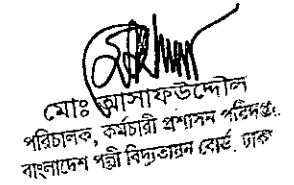 মোঃ আসাফউদ্দৌলা
পরিচালক, কর্মচারী প্রশাসন পরিদপ্তর
বাংলাদেশ পল্লী বিদ্যুতায়ন বোর্ড, ঢাকা